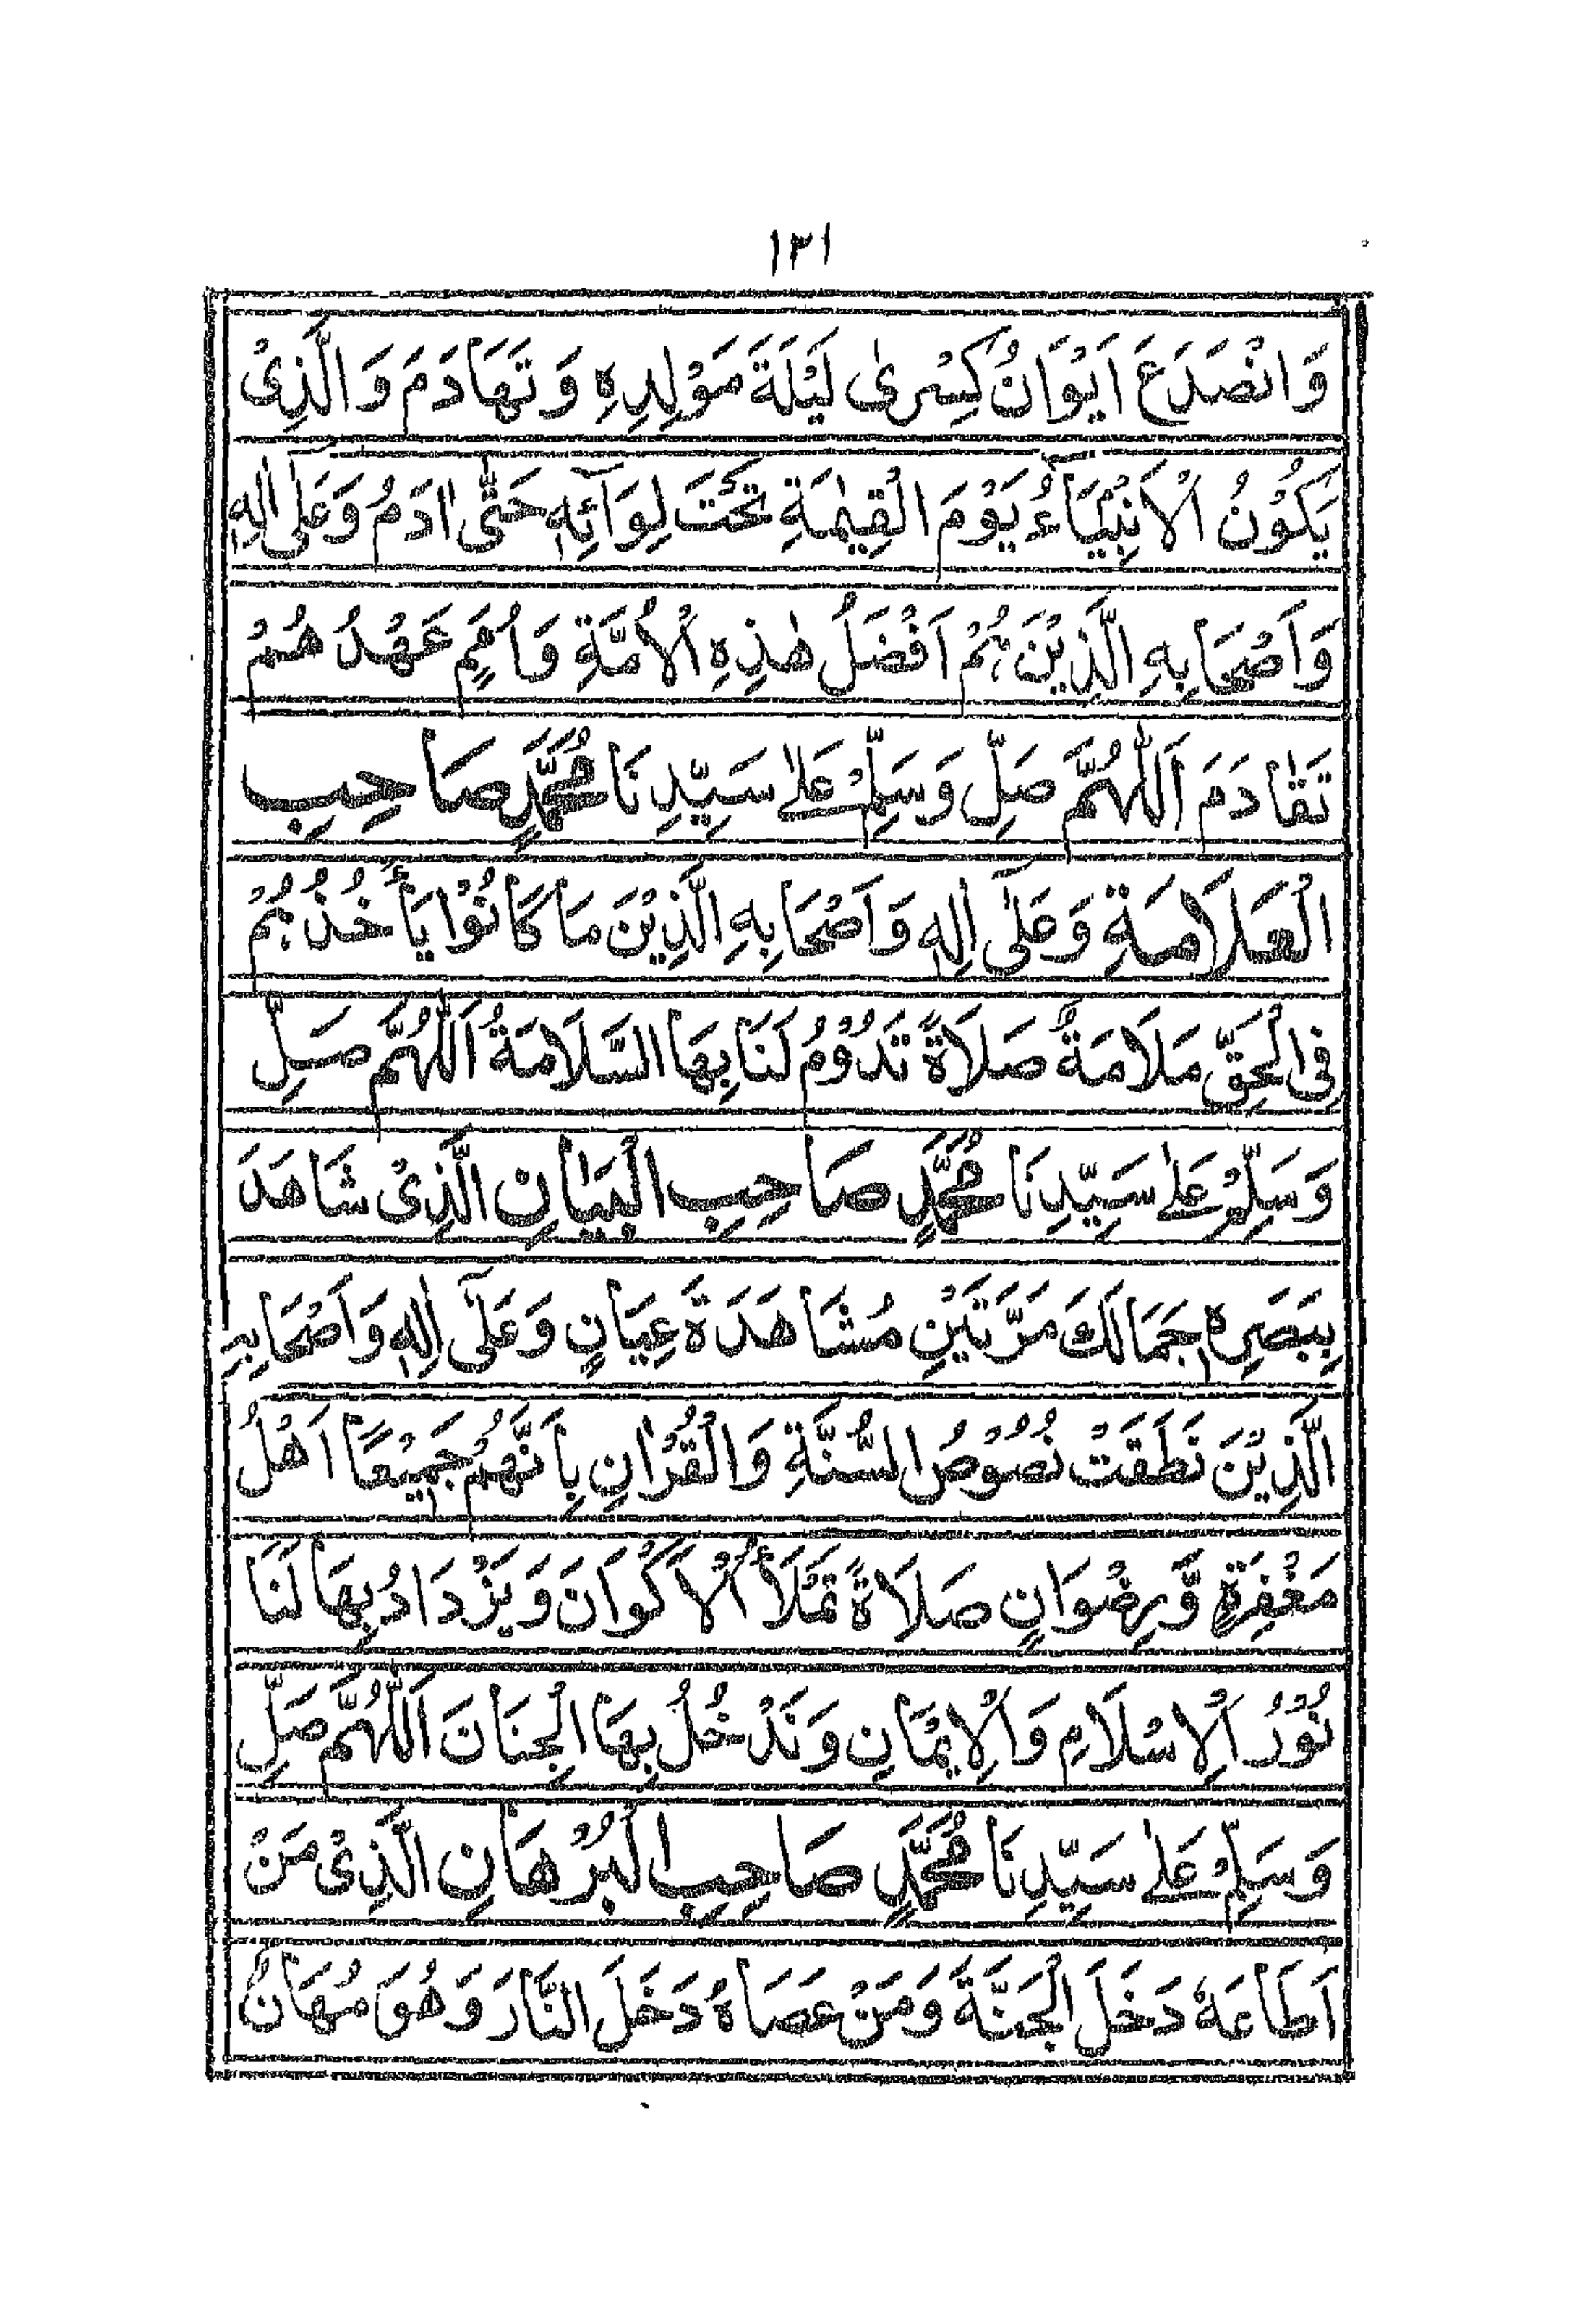 ١٣١
وَانْصَدَعَ اَيْوَانُ كِسْرٰى لَيْلَةَ مَوْلِدِهٖ وَتَهَادَمَ وَالَّذِىْ
يَكُوْنُ الْاَنْبِيَآءُ يَوْمَ الْقِيٰمَةِ تَحْتَ لِوَآئِهٖ حَتّٰى اٰدَمُ وَعَلٰى اٰلِهٖ
وَاَصْحَابِهِ الَّذِيْنَ هُمْ اَفْضَلُ هٰذِهِ الْاُمَّةِ وَاُمَمٍ عَهْدُ هُمُ
تَقَادَمَ اَللّٰهُمَّ صَلِّ وَسَلِّمْ عَلٰى سَيِّدِنَا مُحَمَّدٍ صَاحِبِ
الْعَلَامَةِ وَعَلٰٓى اٰلِهٖ وَاَصْحَابِهِ الَّذِيْنَ مَا كَانُوْا يَأْخُذُهُمْ
فِى الْحَقِّ مَلَامَةٌ صَلَاةً تَدُوْمُ لَنَا بِهَا السَّلَامَةُ اَللّٰهُمَّ صَلِّ
وَسَلِّمْ عَلٰى سَيِّدِنَا مُحَمَّدٍ صَاحِبِ الْبَيَانِ الَّذِىْ شَاهَدَ
بِبَصَرِهٖ جَمَالَكَ مَرَّتَيْنِ مُشَاهَدَةَ عِيَانٍ وَعَلٰٓى اٰلِهٖ وَاَصْحَابِهِ
الَّذِيْنَ نَطَقَتْ نُصُوْصُ السُّنَّةِ وَالْقُرْاٰنِ بِاَنَّهُمْ جَمِيْعًا اَهْلُ
مَغْفِرَةٍ وَّرِضْوَانٍ صَلَاةً تَمْلَأُ الْاَكْوَانَ وَيَزْدَادُ بِهَا لَنَا
نُوْرُ الْاِسْلَامِ وَالْاِيْمَانِ وَنَدْخُلُ بِهَا الْجِنَانَ اَللّٰهُمَّ صَلِّ
وَسَلِّمْ عَلٰى سَيِّدِنَا مُحَمَّدٍ صَاحِبِ الْبُرْهَانِ الَّذِىْ مَنْ
اَطَاعَهٗ دَخَلَ الْجَنَّةَ وَمَنْ عَصَاهُ دَخَلَ النَّارَ وَهُوَ مُهَانٌ